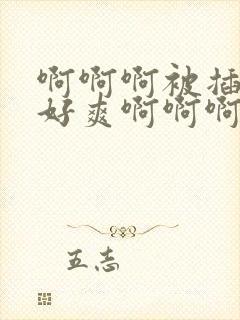 啊啊啊被插
好爽啊啊啊
五志